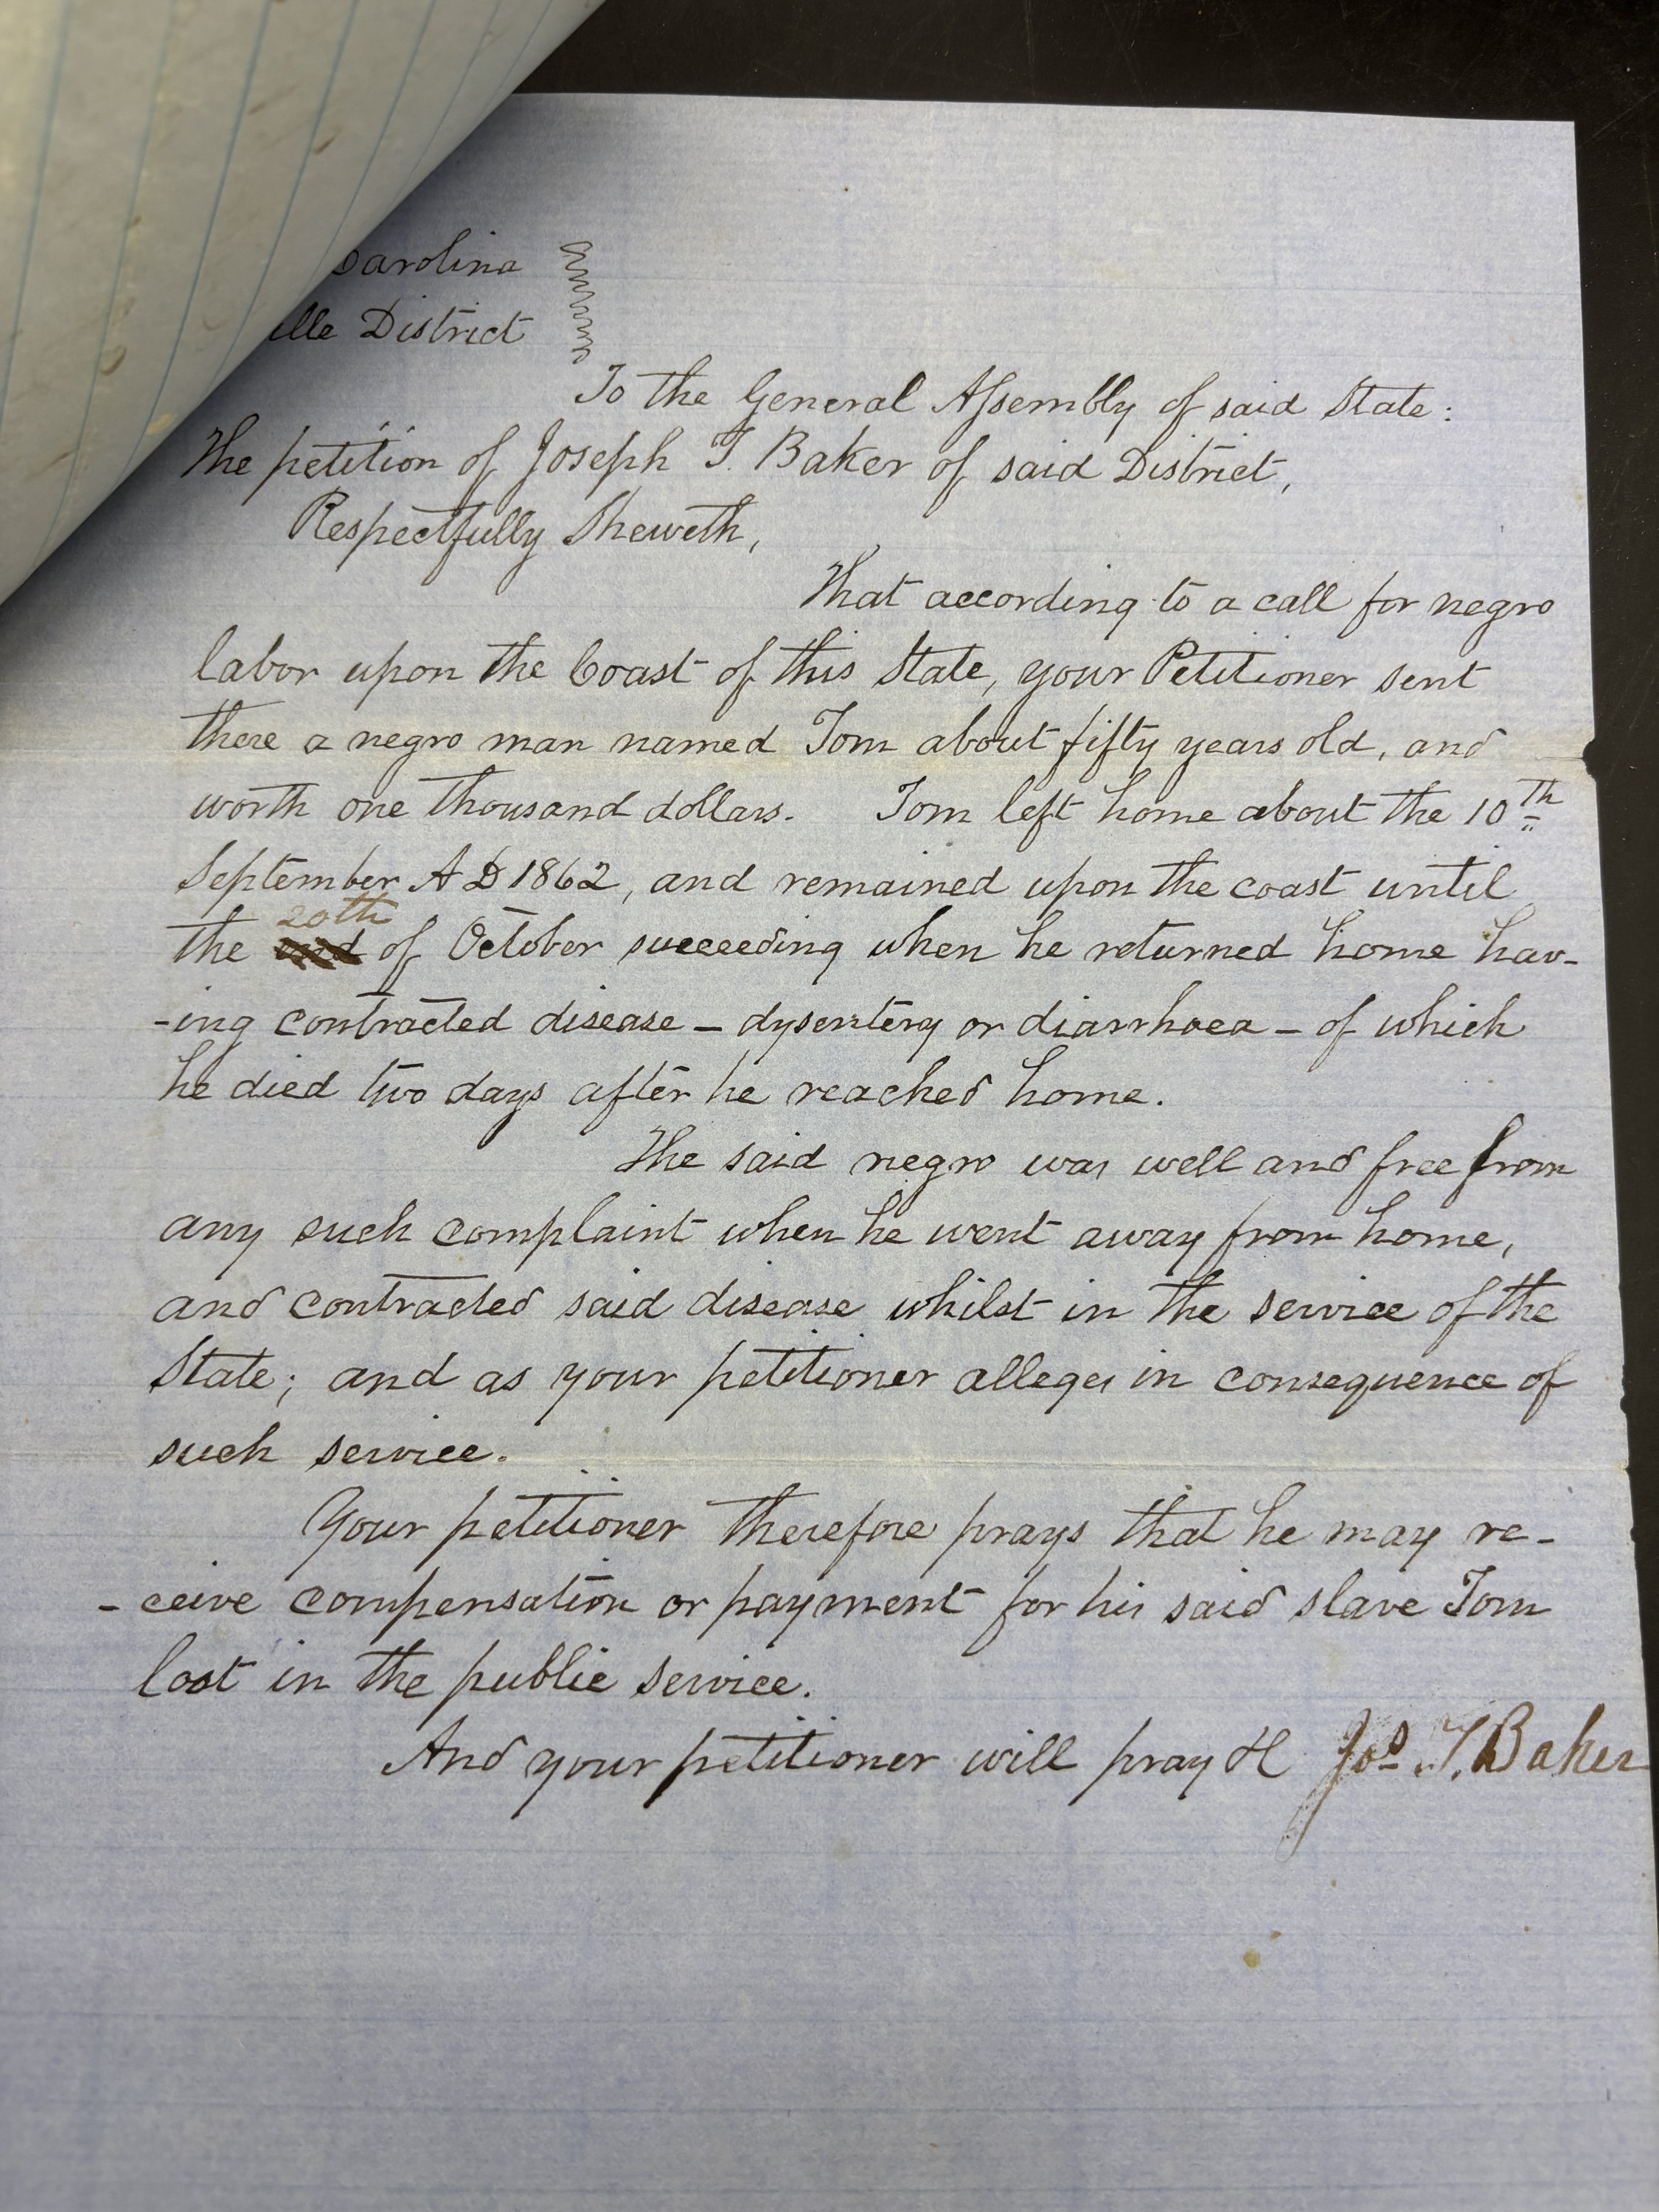 Carolina
ille District
To the General Assembly of said State:
The petition of Joseph T. Baker of said District,
Respectfully Sheweth,
That according to a call for negro
labor upon the Coast of this State, your Petitioner sent
there a negro man named Tom about fifty years old, and
worth one thousand dollars. Tom left home about the 10th
September A D 1862, and remained upon the coast until
20th
the of October succeeding when he returned home hav-
-ing contracted disease – dysentery or diarrhoea – of which
he died two days after he reached home.
The said negro was well and free from
any such complaint when he went away from home,
and contracted said disease whilst in the service of the
State; and as your petitioner alleges in consequence of
such service.
Your petitioner therefore prays that he may re-
-ceive compensation or payment for his said slave Tom
lost in the public service.
And your petitioner will pray &c Jos. T. Baker